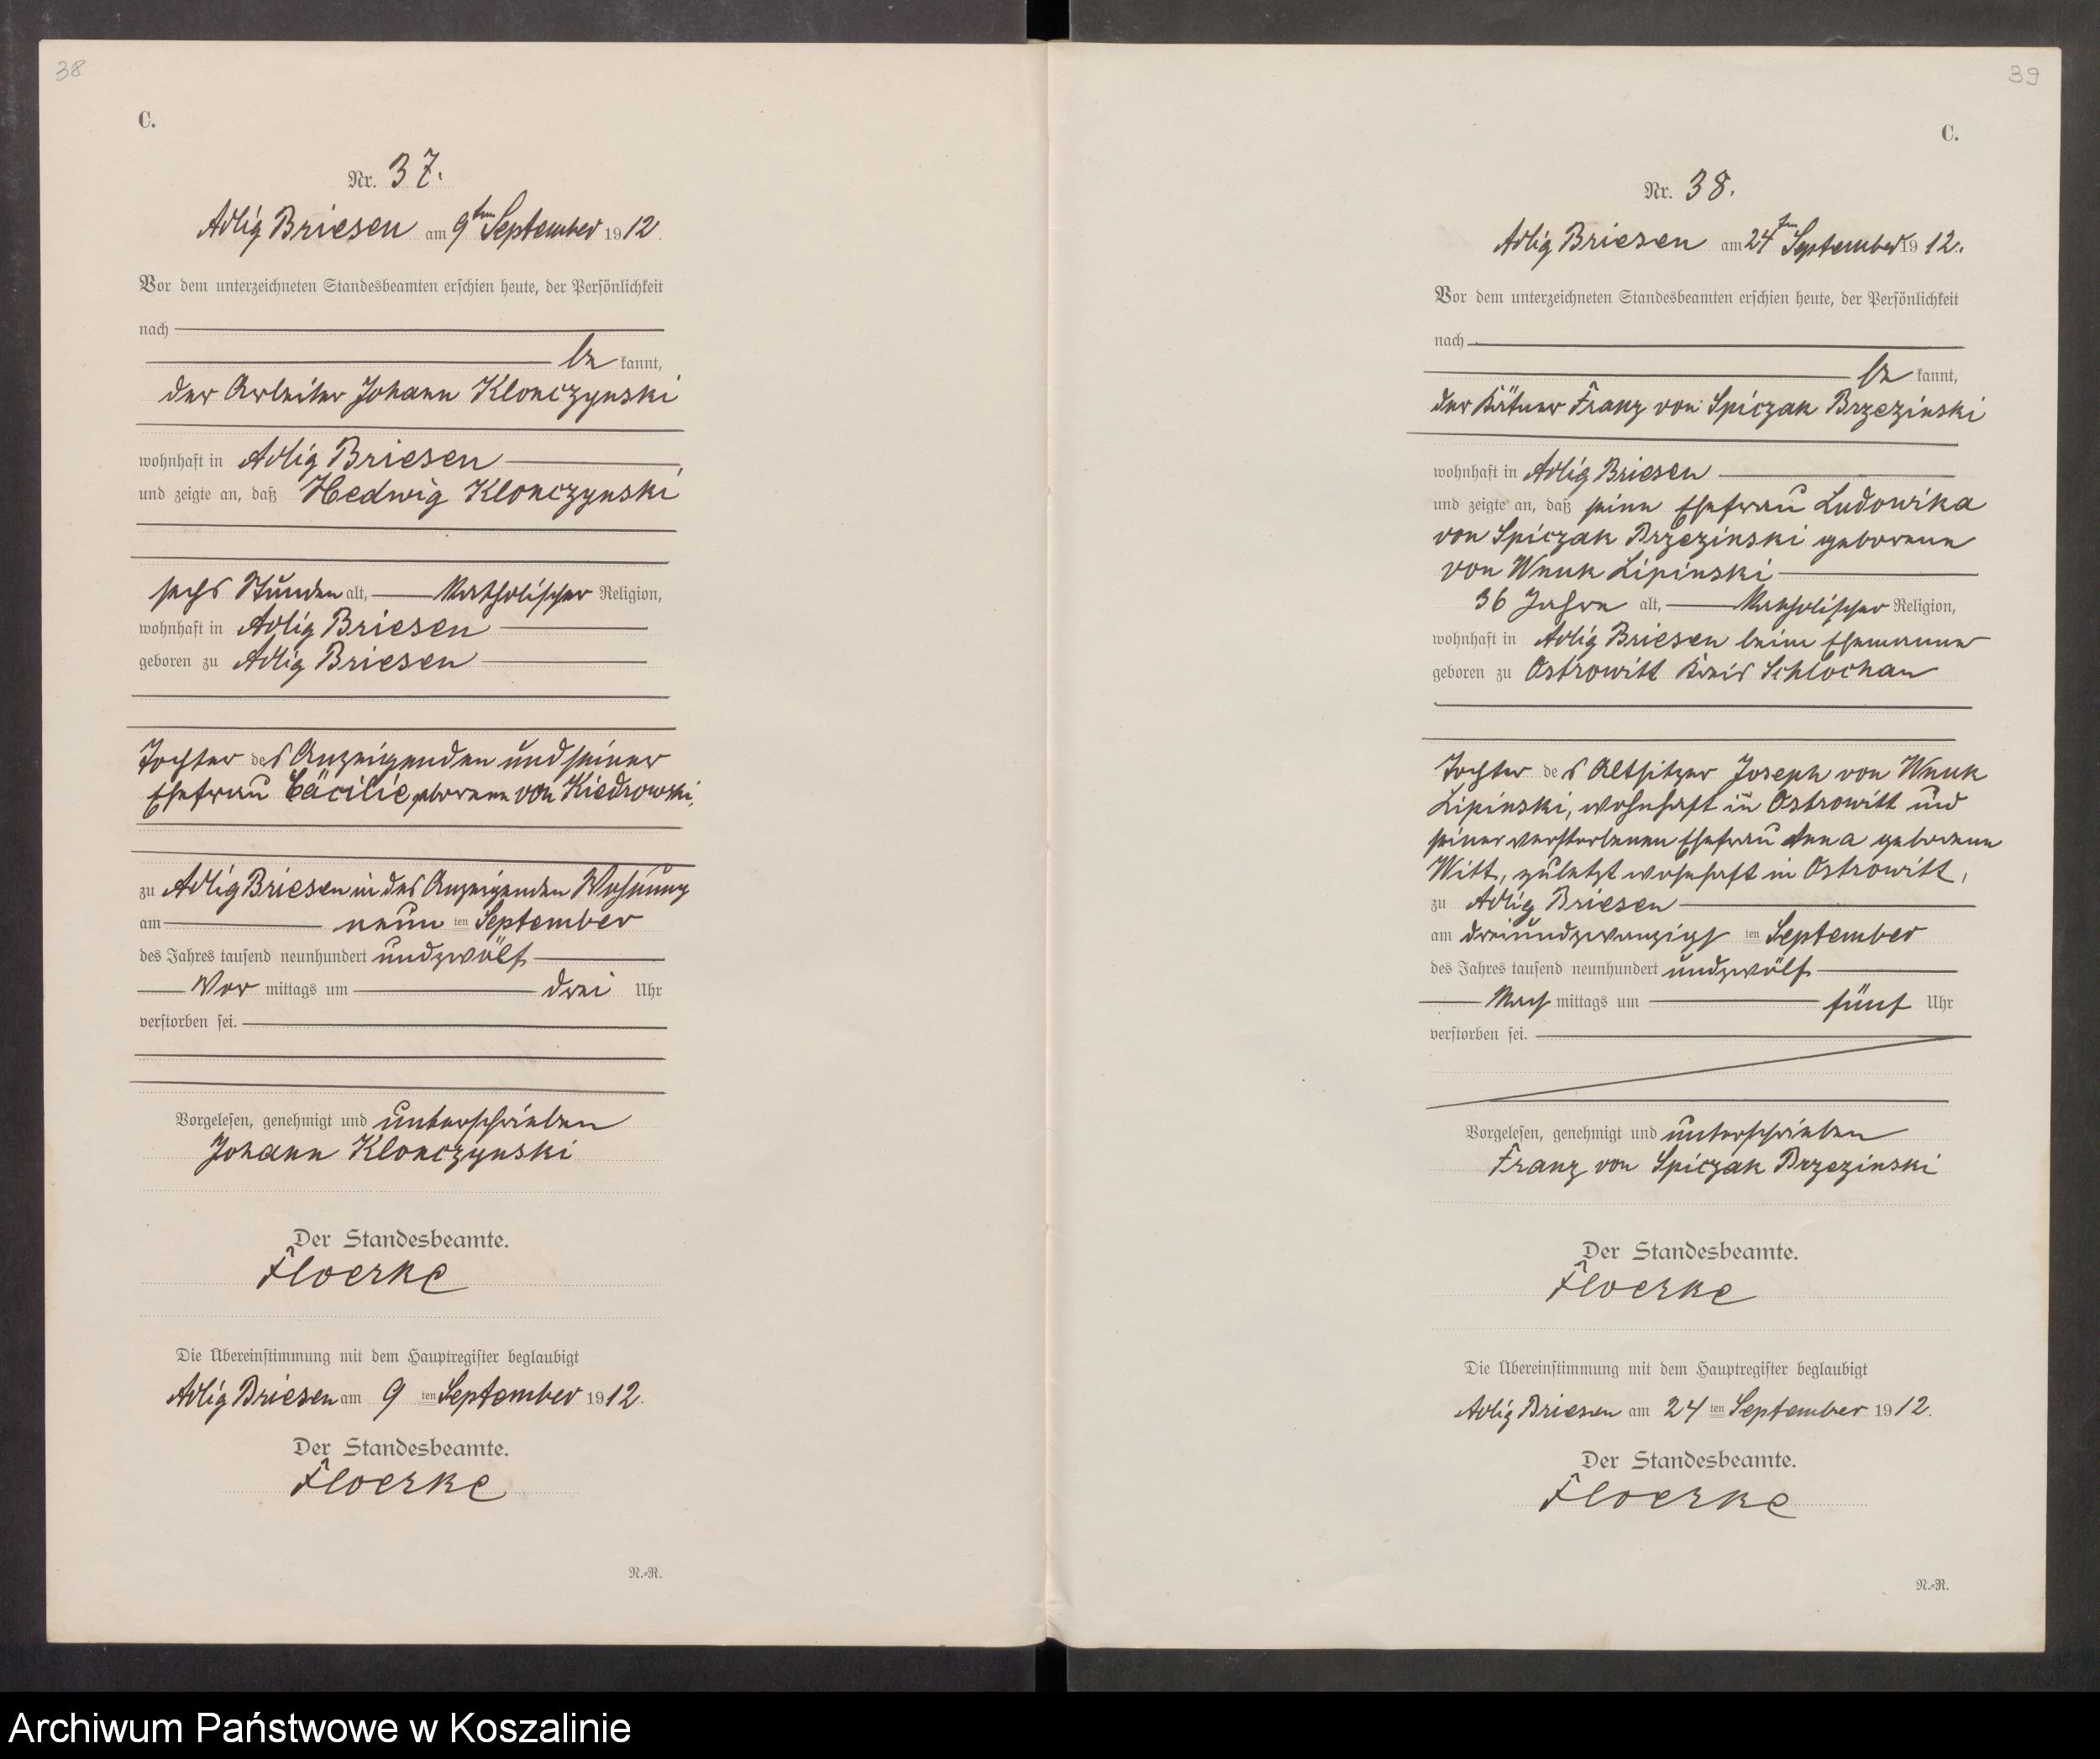 38
C.
Nr. 37.
Adlig Briesen am 9ten September 1912.
Vor dem unterzeichneten Standesbeamten erschien heute, der Persönlichkeit
nach
be kannt,
der Arbeiter Johann Klonczynski
wohnhaft in Adlig Briesen
und zeigte an, daß Hedwig Klonczynski
sechs Stunden alt, katholischer Religion,
wohnhaft in Adlig Briesen
geboren zu Adlig Briesen
Tochter des Anzeigenden und seiner
Ehefrau Cäcilie geborene von Kiedrowski,
zu Adlig Briesen in des Anzeigenden Wohnung
am neun ten September
des Jahres tausend neunhundert undzwölf
Vor mittags um drei Uhr
verstorben sei.
Vorgelesen, genehmigt und unterschrieben
Johann Klonczynski
Der Standesbeamte.
Floerke
Die Übereinstimmung mit dem Hauptregister beglaubigt
Adlig Briesen am 9 ten September 1912.
Der Standesbeamte.
Floerke
N.-R.
39
C.
Nr. 38.
Adlig Briesen am 24ten September 1912.
Vor dem unterzeichneten Standesbeamten erschien heute, der Persönlichkeit
nach
be kannt,
der Kätner Franz von Spiczak Brzezinski
wohnhaft in Adlig Briesen
und zeigte an, daß seine Ehefrau Ludowika
von Spiczak Brzezinski geborene
von Wnuk Lipinski
36 Jahre alt, katholischer Religion,
wohnhaft in Adlig Briesen beim Ehemanne
geboren zu Ostrowitt Kreis Schlochau
Tochter des Altsitzer Joseph von Wnuk
Lipinski, wohnhaft in Ostrowitt und
seiner verstorbenen Ehefrau Anna geborene
Witt, zuletzt wohnhaft in Ostrowitt,
zu Adlig Briesen
am dreiundzwanzigs ten September
des Jahres tausend neunhundert undzwölf
Nach mittags um fünf Uhr
verstorben sei.
Vorgelesen, genehmigt und unterschrieben
Franz von Spiczak Brzezinski
Der Standesbeamte.
Floerke
Die Übereinstimmung mit dem Hauptregister beglaubigt
Adlig Briesen am 24 ten September 1912.
Der Standesbeamte.
Floerke
N.-R.
Archiwum Państwowe w Koszalinie